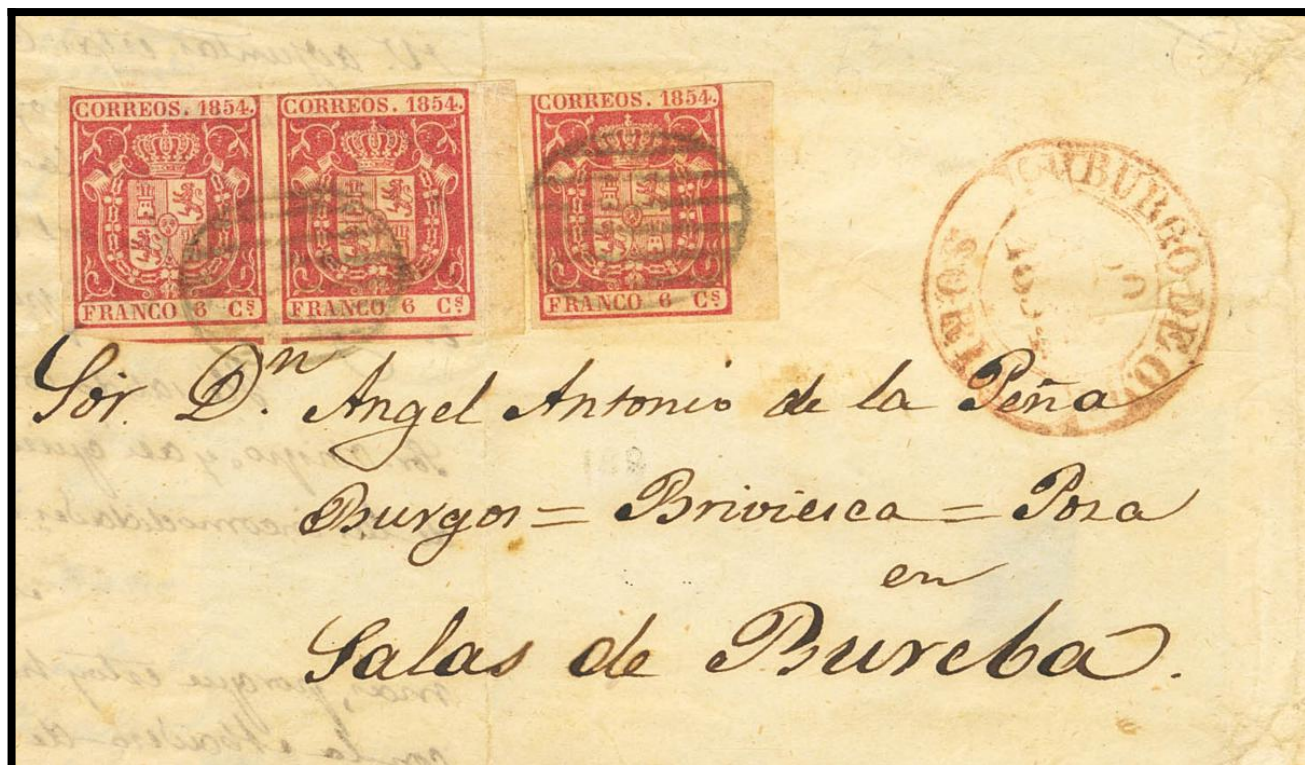 CORREOS. 1854. CORREOS. 1854. CORREOS. 1854.
FRANCO 6 Cs FRANCO 6 Cs FRANCO 6 Cs
BURGO DE O
Sor. Dn. Angel Antonio de la Peña
Burgos = Briviesca = Poza
en
Salas de Bureba.